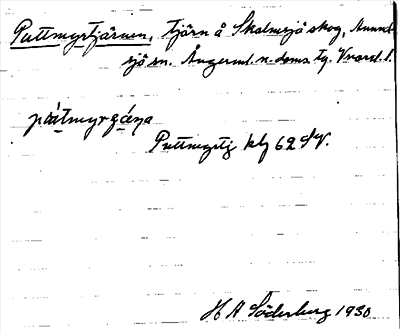 Puttmyrtjärnen, tjärn å Skalmsjö skog, Anund-
sjö sn. Ångerml. n. doms. tg. Vnorrl. l.
Puttmyrtj kbl 62 SV.
H A Söderberg 1930